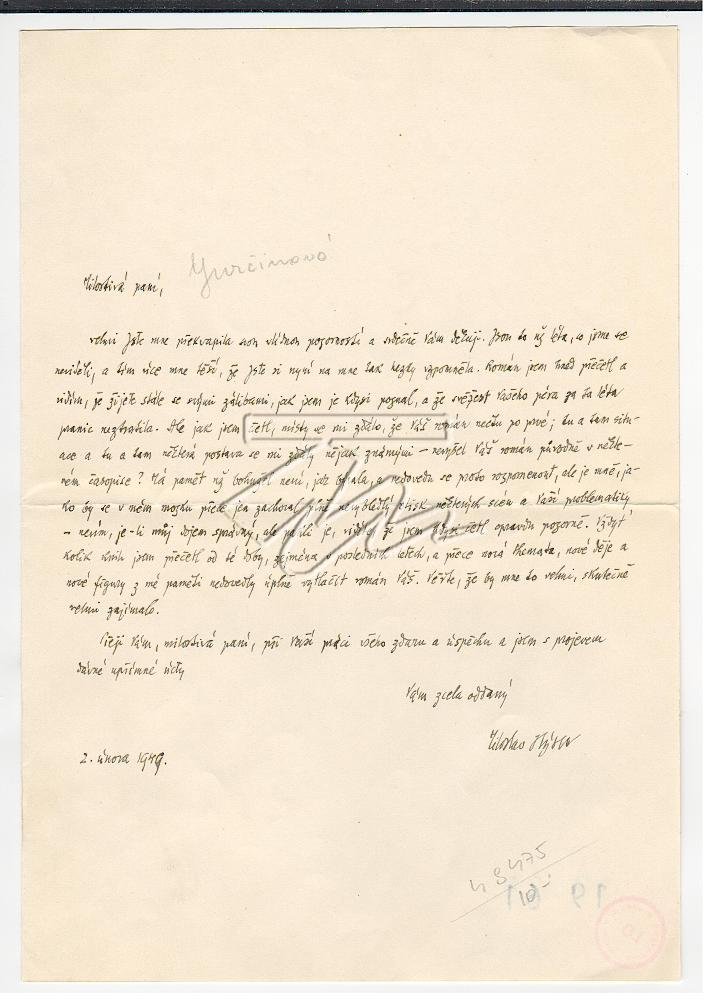 Jurčinová
Milostivá paní,
velmi jste mne překvapila svou vlídnou pozorností a srdečně Vám děkuji. Jsou to už léta, co jsme se
neviděli, a tím více mne těší, že jste si nyní na mne tak hezky vzpomněla. Román jsem hned přečetl a
vidím, že žijete stále se svými zálibami, jak jsem je kdysi poznal, a že svěžest Vašeho péra za ta léta
pranic neztratila. Ale jak jsem četl, místy se mi zdálo, že Váš román nečtu po prvé; tu a tam situ-
ace a tu a tam některá postava se mi zdály nějak známými – nevyšel Váš román původně v někte-
rém časopise? Má paměť už bohužel není, jaká bývala, a nedovedu se proto rozpomenout, ale je mně, ja-
ko by se v mém mozku přece jen zachoval nevybledlý otisk některých scén a Vaší problematiky
– nevím, je-li můj dojem správný, ale je, vidíte, že jsem kdysi četl opravdu pozorně. Vždyť
kolik knih jsem přečetl od té doby, zejména v posledních letech, a přece nová themata, nové děje a
nové figury z mé paměti nedovedly úplně vytlačit román Váš. Věřte, že by mne to velmi, skutečně
velmi zajímalo.
Přeji Vám, milostivá paní, při Vaší práci všeho zdaru a úspěchu a jsem s projevem
dávné upřímné úcty
Vám zcela oddaný
Miloslav Hýsek
2. února 1949.
49475
10-
19 61